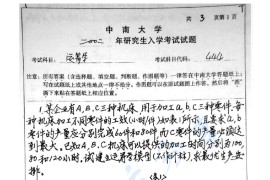 共 3 页第 1 页
中 南 大 学
2002 年研究生入学考试试题
考试科目: 运筹学 考试科目代码: 444
注意:所有答案(含选择题、填空题、判断题、作图题等)一律答在中南大学答题纸上;
写在试题纸上或其他地点一律不给分。作图题可以在原试题图上作答,然后将“图
撕下来贴在答题纸上相应位置。
1. 某企业有A, B, C三种机床,用于加工a, b, c三种零件,每
种机床加工不同零件的工效(小时/件)如表1所示,且要求a, b
零件的产量应分别完成60件和80件,而C零件的产量必须达
到最大。已知A, B, C机床可以提供的加工时间分别为100,
80和120小时,试建立运筹学模型(不作计算),求最优生产安
排。